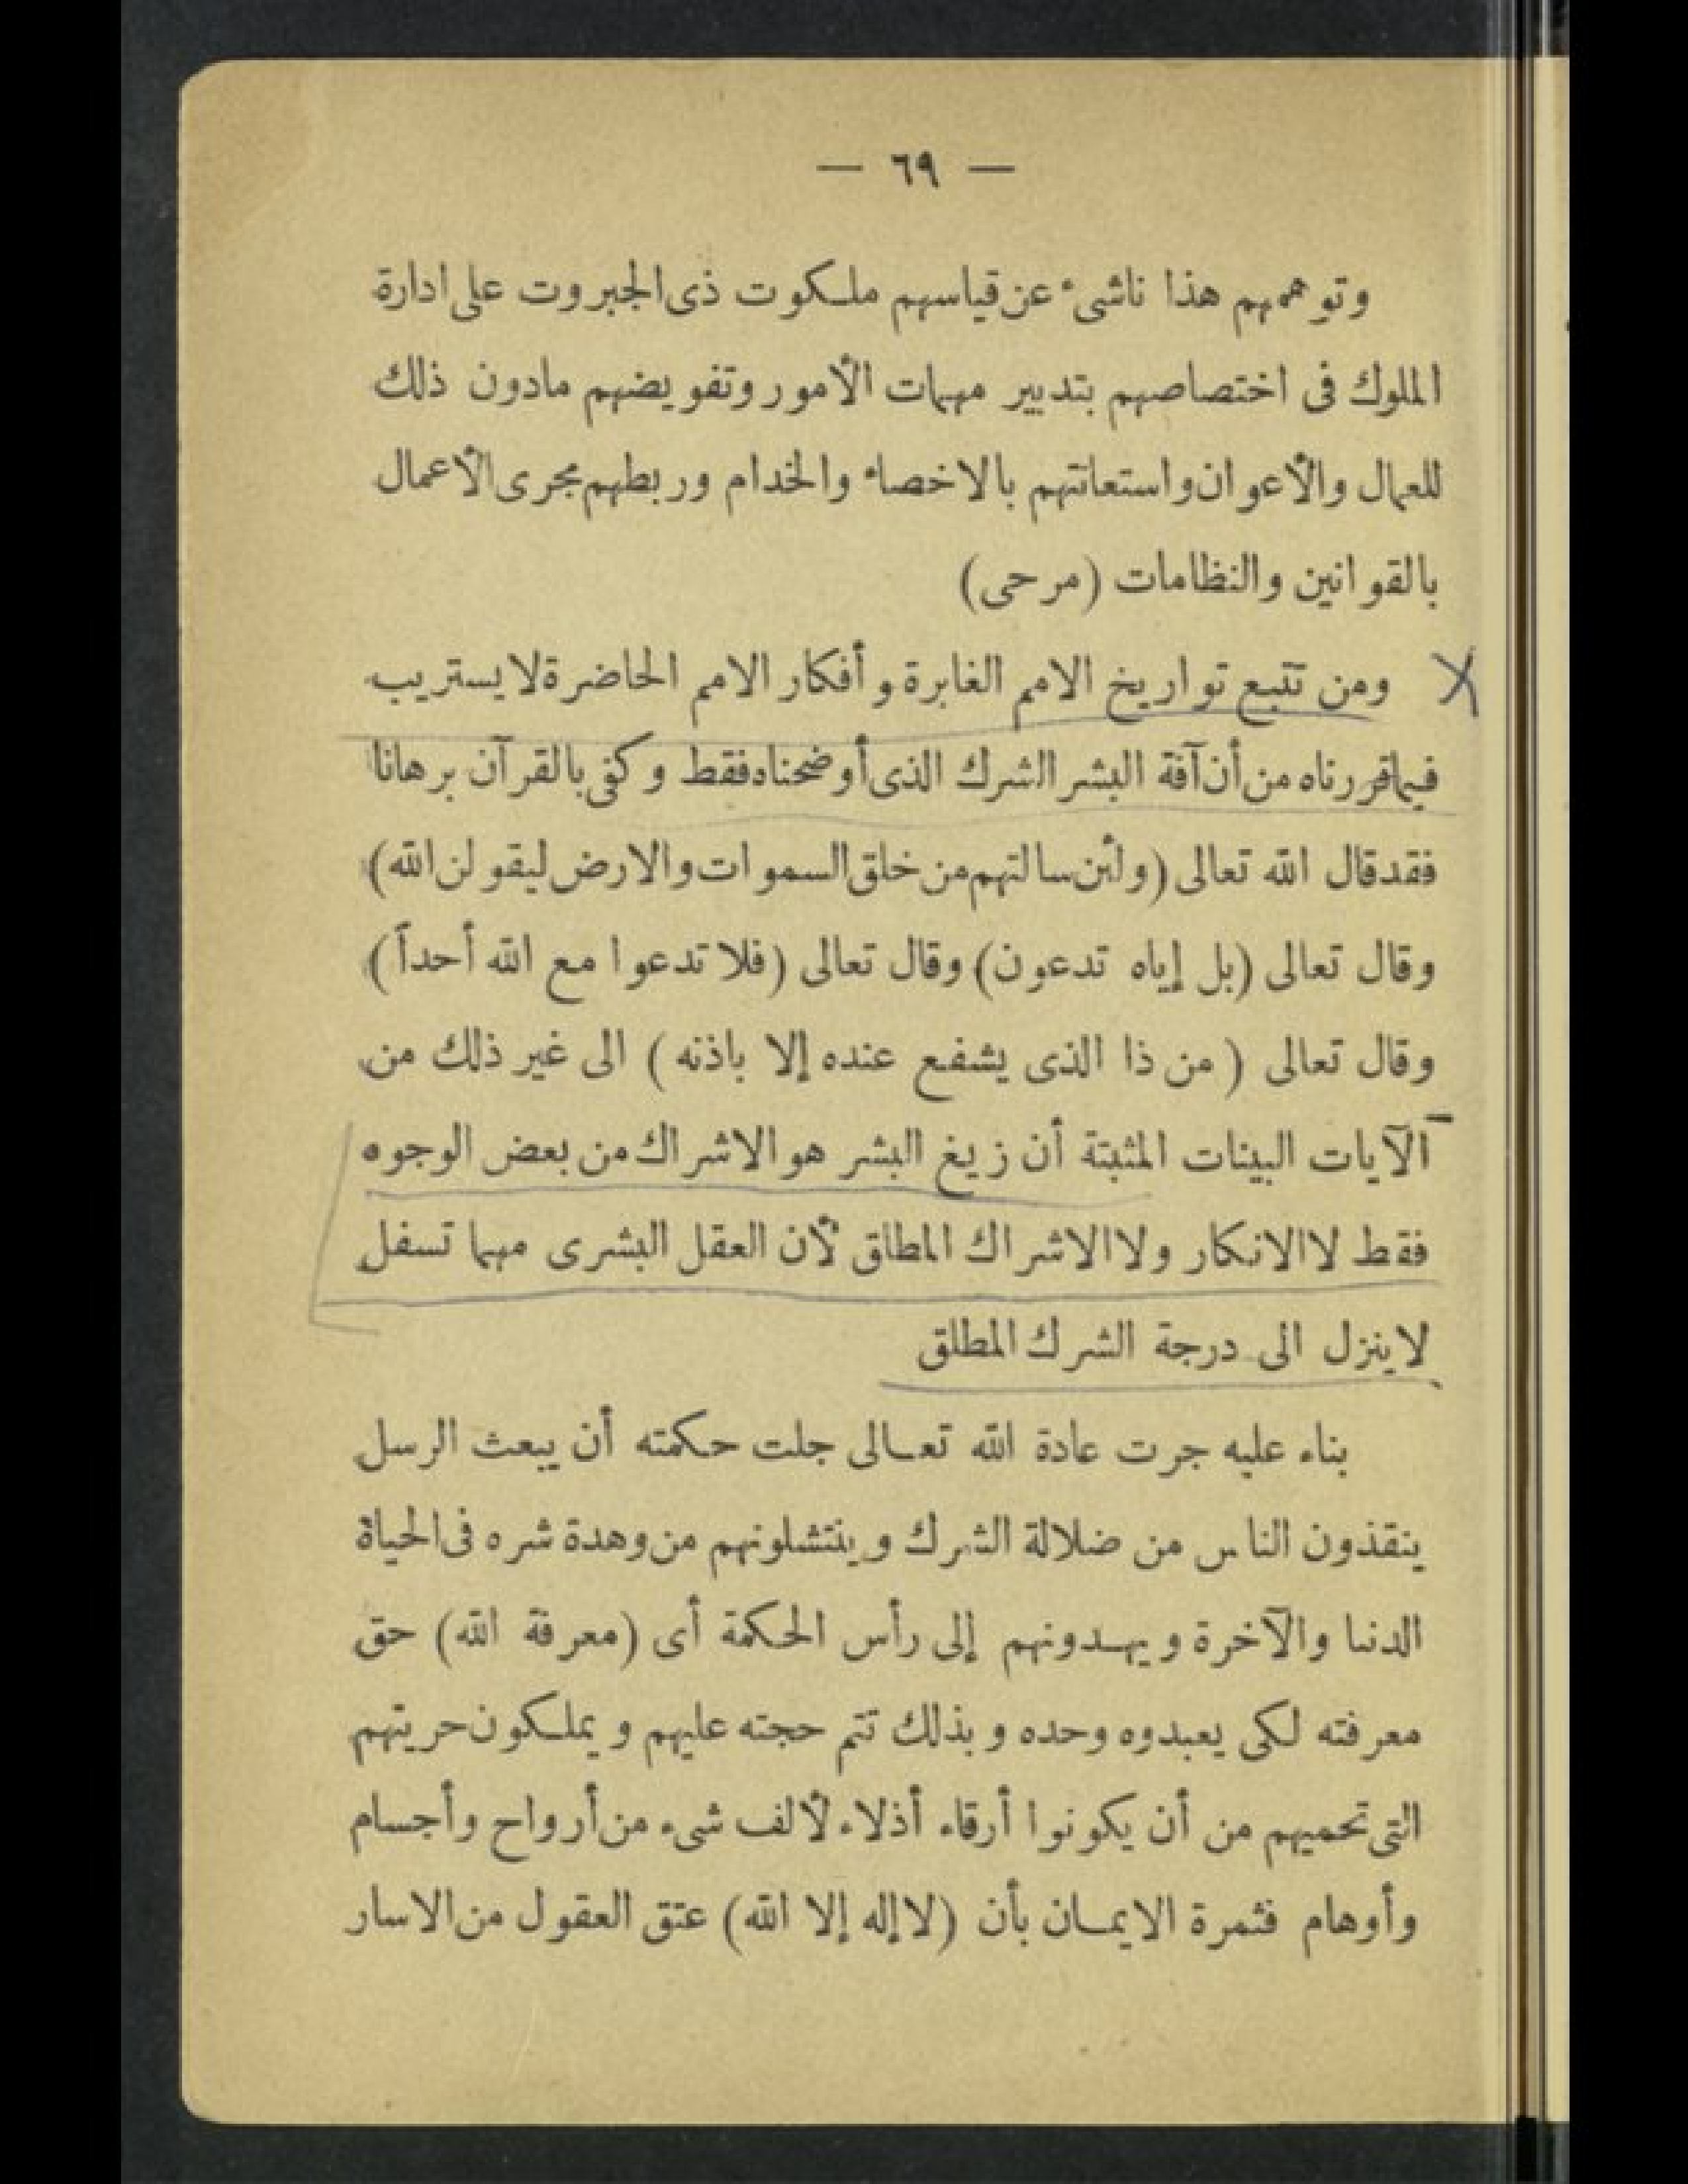 — ٦٩ —
وتوهمهم هذا ناشىء عن قياسهم ملكوت ذى الجبروت على ادارة
الملوك فى اختصاصهم بتدبير مهمات الأمور وتفويضهم مادون ذلك
للعمال والأعوان واستعانتهم بالاخصاء والخدام وربطهم مجرى الأعمال
بالقوانين والنظامات (مرحى)
ومن تتبع تواريخ الامم الغابرة وأفكار الامم الحاضرة لا يستريب
فيما قررناه من أن آفة البشر الشرك الذى أوضحناه فقط وكفى بالقرآن برهانا
فقد قال الله تعالى (ولئن سالتهم من خلق السموات والارض ليقولن الله)
وقال تعالى (بل إياه تدعون) وقال تعالى (فلا تدعوا مع الله أحداً)
وقال تعالى (من ذا الذى يشفع عنده إلا باذنه) الى غير ذلك من
الآيات البينات المثبتة أن زيغ البشر هو الاشراك من بعض الوجوه
فقط لا الانكار ولا الاشراك المطلق لأن العقل البشرى مهما تسفل
لا ينزل الى درجة الشرك المطلق
بناء عليه جرت عادة الله تعالى جلت حكمته أن يبعث الرسل
ينقذون الناس من ضلالة الشرك وينتشلونهم من وهدة شره فى الحياة
الدنيا والآخرة ويهدونهم إلى رأس الحكمة أى (معرفة الله) حق
معرفته لكى يعبدوه وحده وبذلك تتم حجته عليهم ويملكون حريتهم
التى تحميهم من أن يكونوا أرقاء أذلاء لألف شىء من أرواح وأجسام
وأوهام فثمرة الايمان بأن (لا إله إلا الله) عتق العقول من الاسار